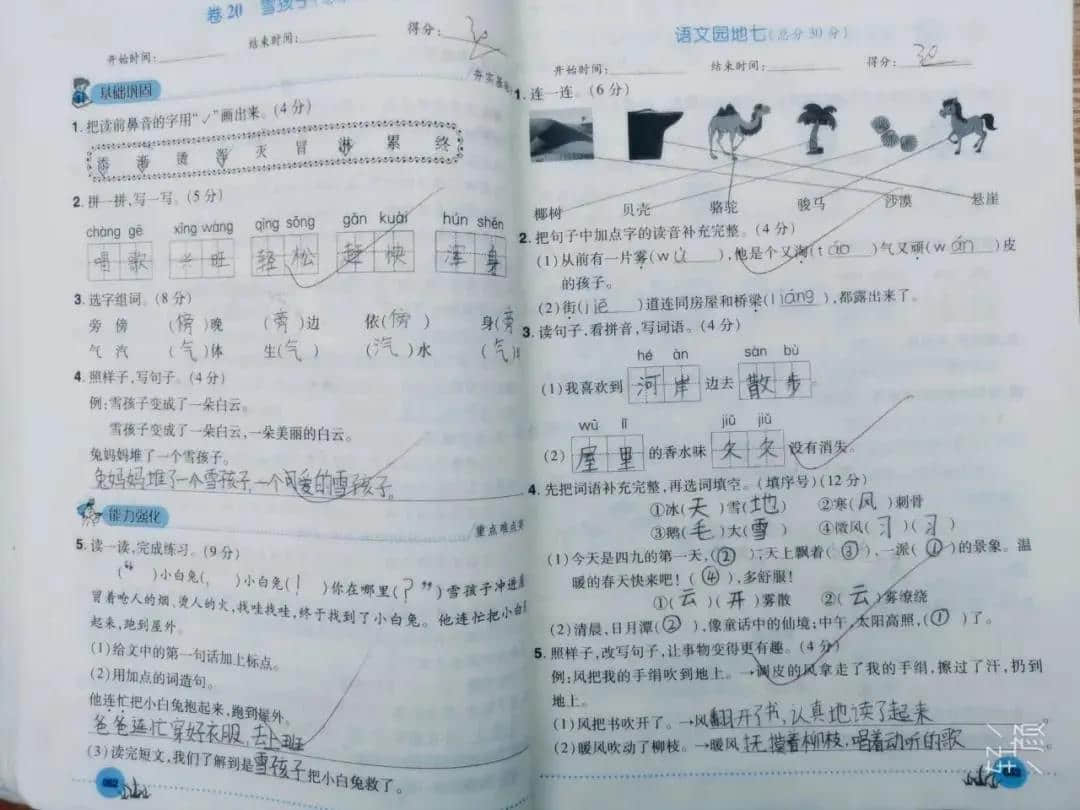 卷20 雪孩子
开始时间: 结束时间: 得分: 30
夯实基
基础巩固
1.把读前鼻音的字用“✓”画出来。(4分)
添 渐 烫 浑 灭 冒 淋 累 终
2.拼一拼,写一写。(5分)
chàng gē xīng wàng qīng sōng gǎn kuài hún shēn
唱歌 兴旺 轻松 赶快 浑身
3.选字组词。(8分)
旁 傍 (傍)晚 (旁)边 依(傍) 身(旁
气 汽 (气)体 生(气) (汽)水 (气)
4.照样子,写句子。(4分)
例:雪孩子变成了一朵白云。
雪孩子变成了一朵白云,一朵美丽的白云。
兔妈妈堆了一个雪孩子。
兔妈妈堆了一个雪孩子,一个可爱的雪孩子。
能力强化
重点难点突
5.读一读,完成练习。(9分)
(“ )小白兔(, )小白兔(! )你在哪里(?”)雪孩子冲进
冒着呛人的烟、烫人的火,找哇找哇,终于找到了小白兔。他连忙把小白
起来,跑到屋外。
(1)给文中的第一句话加上标点。
(2)用加点的词造句。
他连忙把小白兔抱起来,跑到屋外。
爸爸连忙穿好衣服,去上班
(3)读完短文,我们了解到是雪孩子把小白兔救了。
语文园地七(总分30分)
开始时间: 结束时间: 得分: 30
1.连一连。(6分)
椰树 贝壳 骆驼 骏马 沙漠 悬崖
2.把句子中加点字的读音补充完整。(4分)
(1)从前有一片雾(wù),他是个又淘(táo)气又顽(wán)皮
的孩子。
(2)街(jiē)道连同房屋和桥梁(liáng),都露出来了。
3.读句子,看拼音,写词语。(4分)
hé àn sàn bù
(1)我喜欢到 河岸 边去 散步
wū lǐ jiǔ jiǔ
(2) 屋里 的香水味 久久 没有消失。
4.先把词语补充完整,再选词填空。(填序号)(12分)
①冰(天)雪(地) ②寒(风)刺骨
③鹅(毛)大(雪) ④微风(习)(习)
(1)今天是四九的第一天,(②),天上飘着(③),一派(①)的景象。温
暖的春天快来吧!(④),多舒服!
①(云)(开)雾散 ②(云)雾缭绕
(2)清晨,日月潭(②),像童话中的仙境;中午,太阳高照,(①)了。
5.照样子,改写句子,让事物变得更有趣。(4分)
例:风把我的手绢吹到地上。→调皮的风拿走了我的手绢,擦过了汗,扔到
地上。
(1)风把书吹开了。→风翻开了书,认真地读了起来
(2)暖风吹动了柳枝。→暖风 抚摸着柳枝,唱着动听的歌。